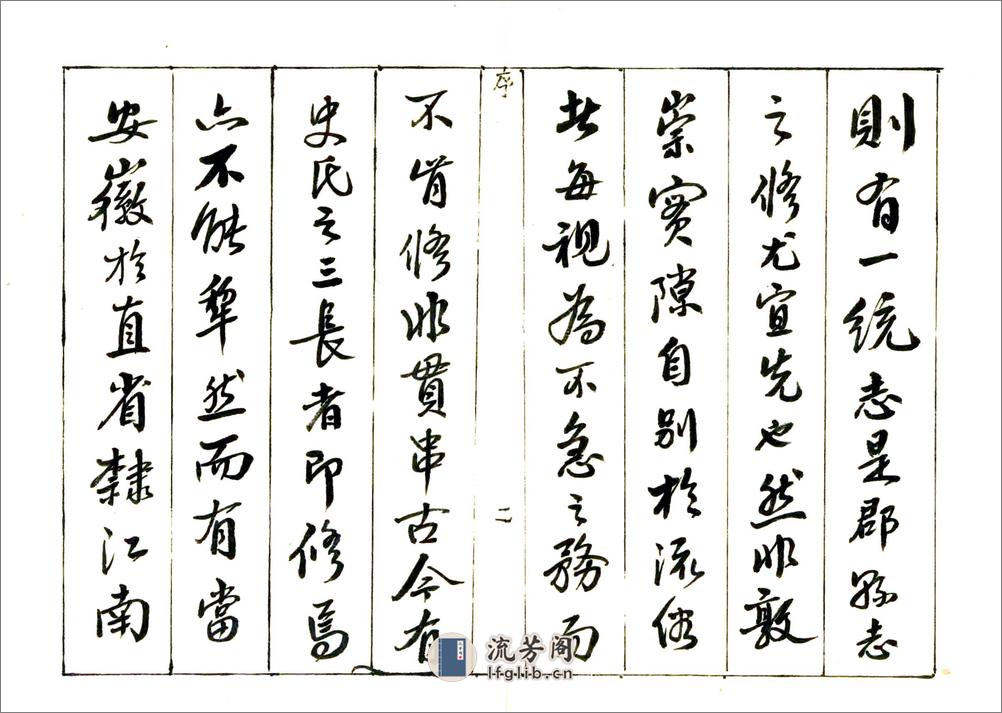 則有一統志是郡縣志
之修尤宜先也然非敦
崇實隙自別於流俗
者每視為不急之務而
序
二
不肯修非貫串古今有
史氏之三長者即修焉
亦不能犂然而有當
安徽於直省隸江南
流芳阁
lfglib.cn